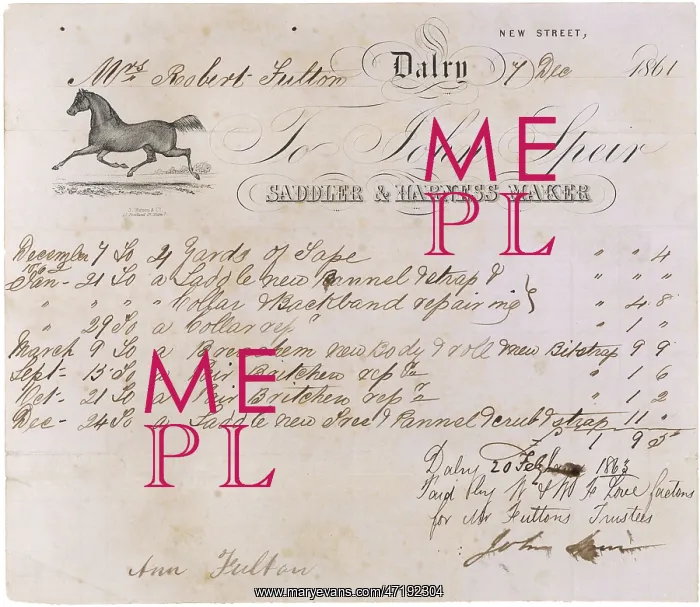 NEW STREET,
Mrs Robert Fulton Dalry 7 Dec 1861
To John Speir
SADDLER & HARNESS MAKER
ME
PL
December 7 To 4 Yards of Tape " " 4
1862
Jan - 21 To a Saddle new Pannel & strap & " " "
" " " " Collar & Backband repairing } " 4 8
" 29 To a Collar rep " 1 "
March 9 To a new Body & new Bitstrap 9 9
Sept - 13 To a Pair Britchen rep " 1 6
Oct - 21 To a Pair Britchen rep " 1 2
Dec - 24 To a Saddle new Tree & Pannel & crub & strap 11 "
£ 1 9 5
ME
PL
Dalry 20 Feby 1863
Paid by W & W F Love factors
for Mr Fultons Trustees
John Speir
Ann Fulton
www.maryevans.com/47192304